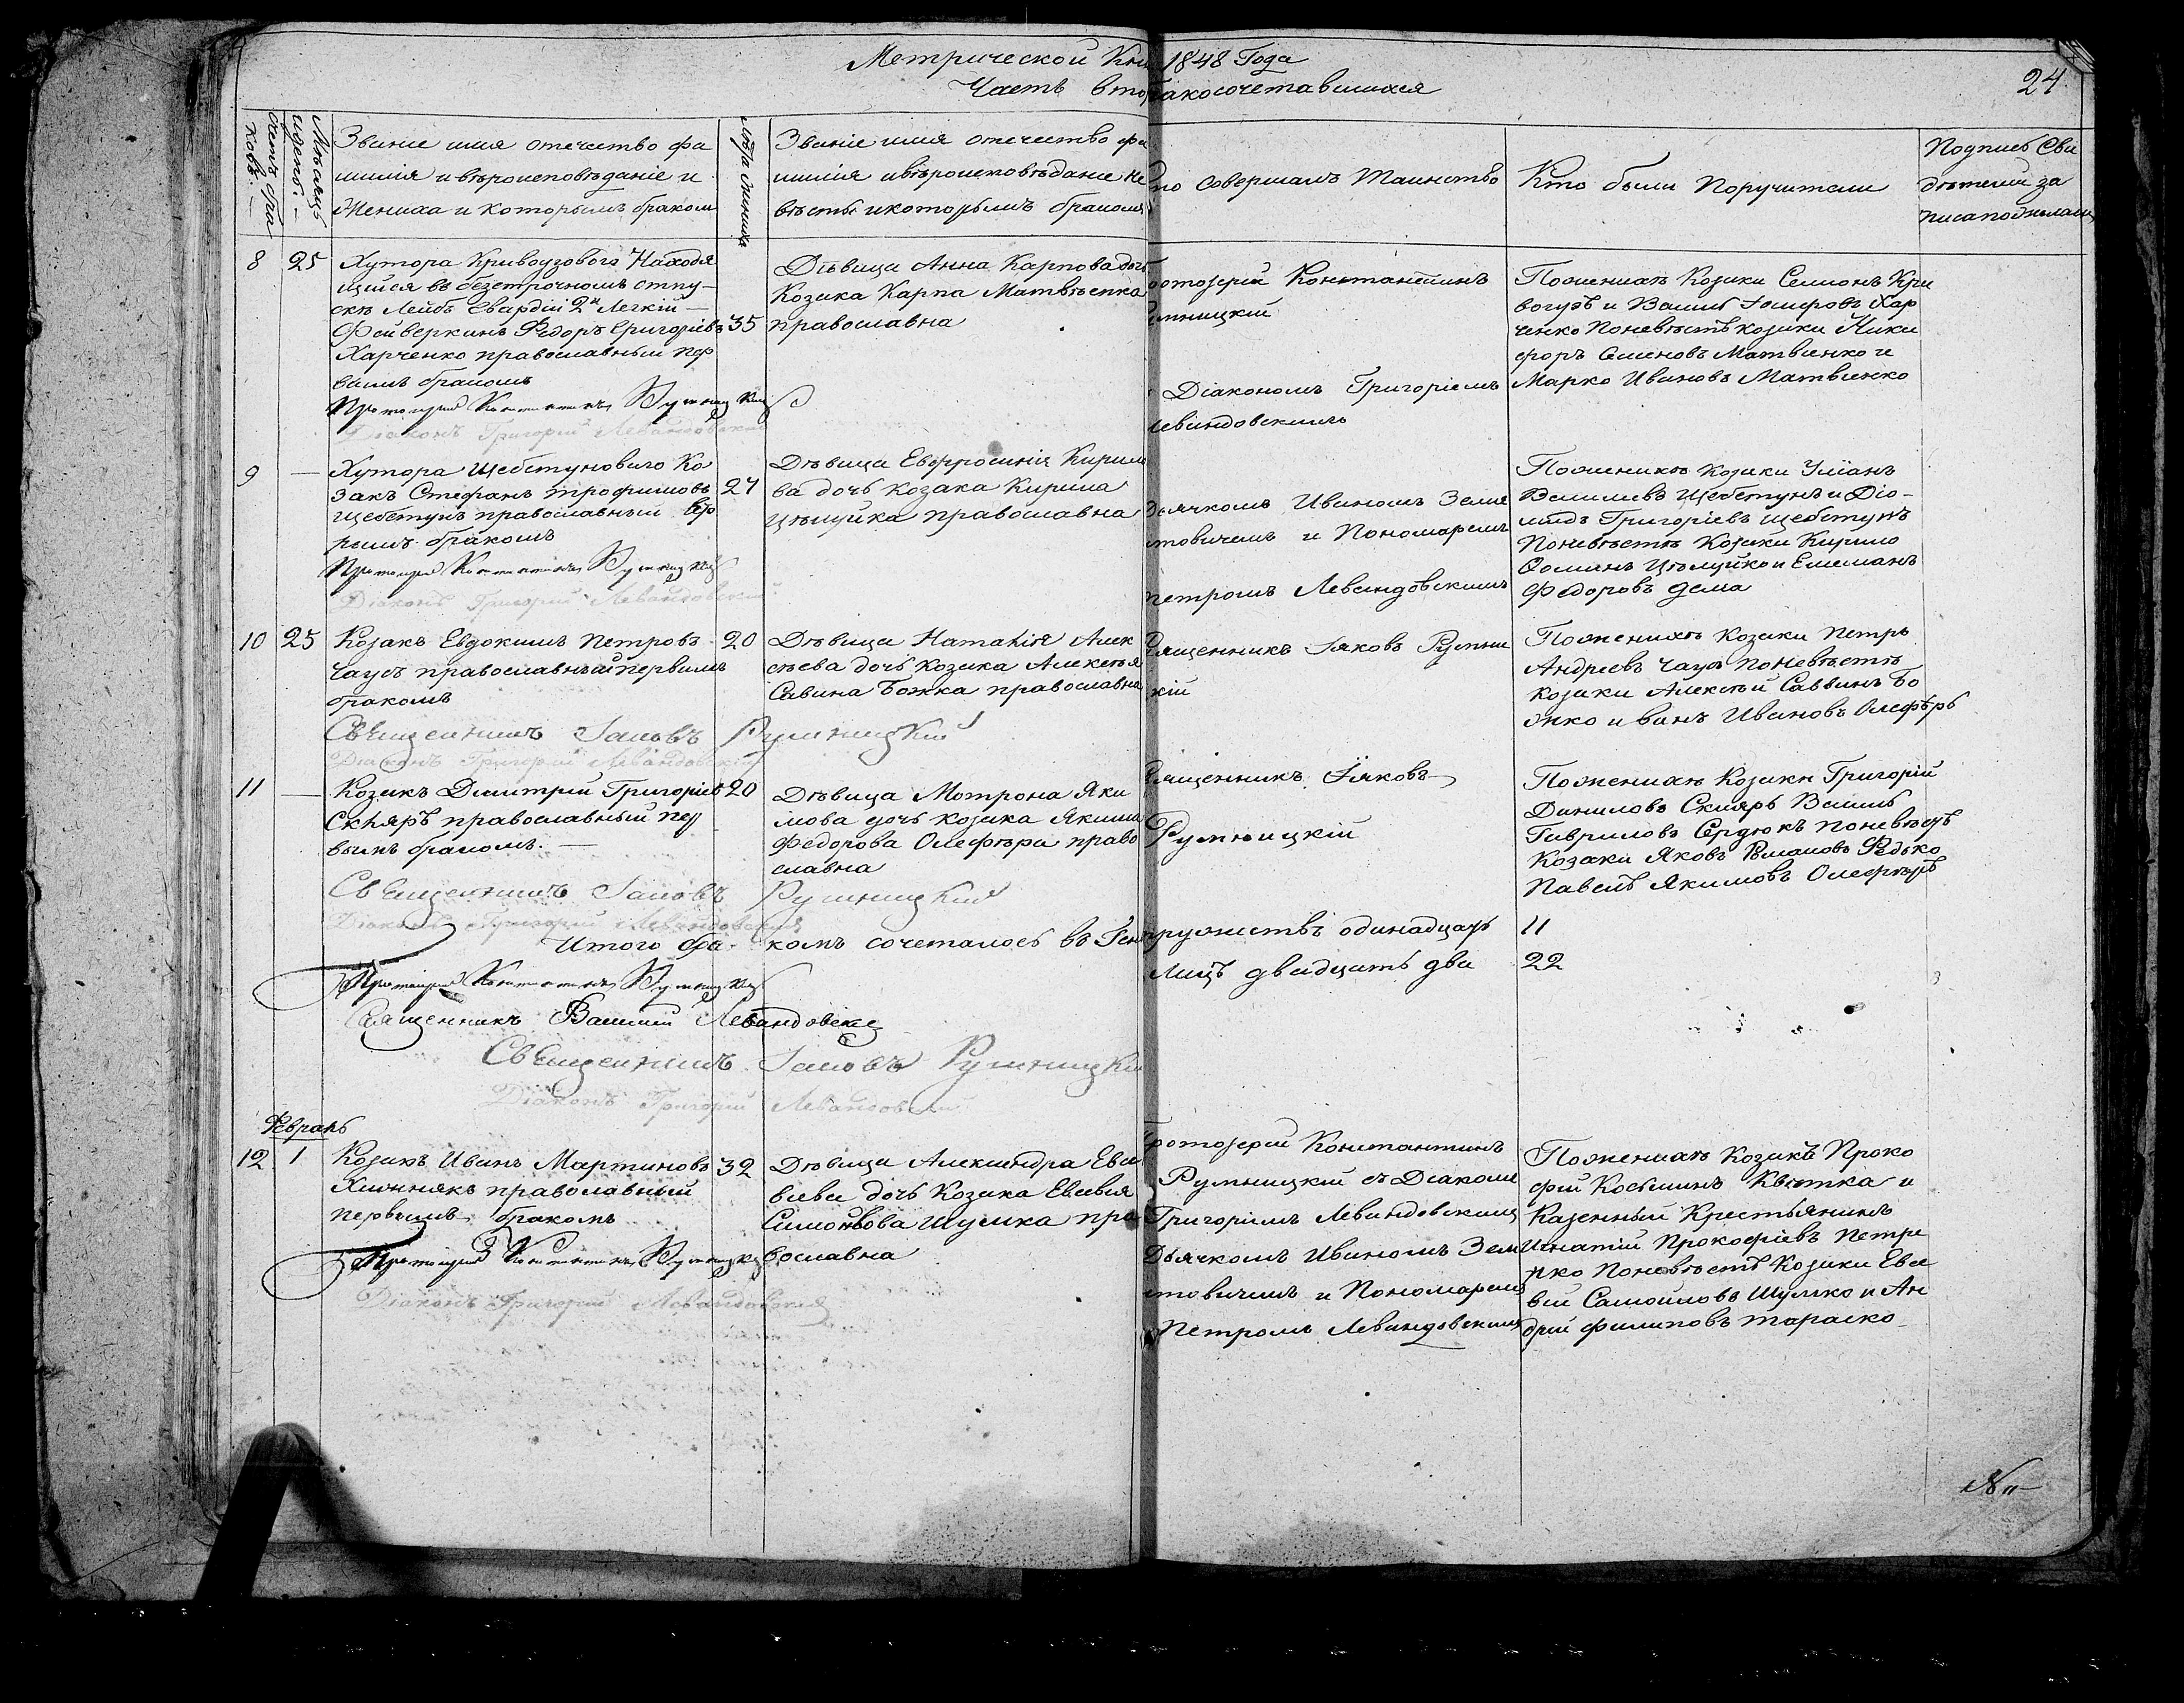 Метрической Кни 1848 Года
Часть вто бракосочетавшихся
24
Счетъ бра
ковъ. —
Мѣсяцъ
и день. —
Званіе имя отечество фа
милія и вѣроисповѣданіе и
Жениха и которымъ бракомъ
Лѣта жениха
Званіе имя отечество фа
милія и вѣроисповѣданіе не
вѣсты и которымъ бракомъ
то совершалъ Таинство
Кто были Поручители
Подписъ Сви
дѣтелей за
писа по желанію
8
25
Хутора Кривоузового Находя
щийся въ безсрочномъ отпу-
скѣ Лейбъ Гвардіи 2й Легкій
Фейверкинъ Федоръ Григоріевъ
Харченко православный пер
вымъ бракомъ
35
Протоіерей Константинъ Румницкій
Діаконъ Григорій Левандовскій
Дѣвица Анна Карпова дочь
Козака Карпа Матвѣенка
православна
ротоіерей Константинъ
умницкій
Діакономъ Григоріемъ
Левандовскимъ
По женихѣ Козаки Семіонъ Кри
вогузъ и Василь Іосифовъ Хар
ченко По невѣстѣ козаки Ники
форъ Семеновъ Матвіенко и
Марко Ивановъ Матвіенко
9
—
Хутора Щебетуновиго Ко
закъ Стефанъ трофимовъ
Щебетунъ православный вто
рымъ бракомъ
27
Протоіерей Константинъ Румницкій
Діаконъ Григорій Левандовскій
Дѣвица Евфросинія Кирило
ва дочь козака Кирила
Цѣлуйка православна
Дьячкомъ Иваномъ Земя
товичемъ и Пономаремъ
петромъ Левандовскимъ
По женихѣ козаки Уліанъ
Василіевъ Щебетунъ и Діо-
мидъ Григоріевъ щебетунъ
По невѣстѣ Козаки Кирило
Фоминъ Цѣлуйко и Емеліанъ
Федоровъ дема
10
25
Козакъ Евдокимъ Петровъ
Чаусъ православный первымъ
бракомъ
20
Священникъ Іаковъ Румницкій
Діаконъ Григорій Левандовскій
Дѣвица Наталія Алек
сѣева дочь Козака Алексѣя
Савина Божка православна
вященникъ Іяковъ Румни
кій
По женихѣ Козаки Петръ
Андреевъ Чаусъ По невѣстѣ
козаки Алексѣй Саввинъ Бо
жко и Иванъ Ивановъ Олефѣръ
11
—
Козакъ Димитрій Григоріевъ
Скляръ православный пер
вымъ бракомъ. —
20
Священникъ Іаковъ Румницкій
Діаконъ Григорій Левандовскій
Дѣвица Мотрона Яки
мова дочь козака Якима
Федорова Олефѣра право
славна
вященникъ Іяковъ
Румницкій
По женихѣ Козаки Григорій
Даниловъ Скляръ Василь
Гавриловъ Сердюкъ по невѣстѣ
Козаки Яковъ Романовъ Федько
Павелъ Якимовъ Олефѣръ
Итого бра- комъ сочеталось въ Ген
ружествѣ одинадцать 11
Лицъ двадцать два 22
Протоіерей Константинъ Румницкій
Священникъ Василий Левандовскі
Священникъ Іаковъ Румницкій
Діаконъ Григорій Левандовскій
Февраль
12
1
Козакъ Иванъ Мартиновъ
Хижнякъ православный
первымъ бракомъ
32
Протоіерей Константинъ Румницкій
Діаконъ Григорій Левандовскій
Дѣвица Александра Евсе
віева дочь Козака Евсевія
Самойлова Шумка пра
вославна
ротоіерей Константинъ
Румницкій съ Діаконом
Григоріемъ Левандовскимъ
Дьячкомъ Иваномъ Земя
товичемъ и Пономаремъ
Петромъ Левандовскимъ
По женихѣ Козакъ Проко
фій Косьминъ Квѣтка и
Казенный Крестьянинъ
Игнатій Прокофіевъ Петре
нко По невѣстѣ Козаки Евсе
вій Самойловъ Шумко и Ан
дрій филиповъ тараско